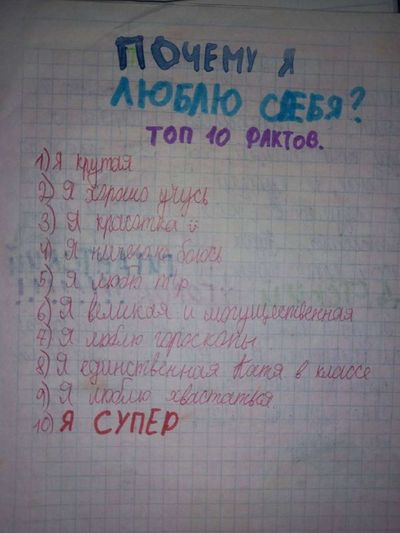 ПОЧЕМУ Я
ЛЮБЛЮ СЕБЯ?
ТОП 10 ФАКТОВ.
1) Я крутая
2) Я хорошо учусь
3) Я красотка
4) Я ничего не боюсь
5) Я люблю
6) Я великая и могущественная
7) Я люблю гороскопы
8) Я единственная Катя в классе
9) Я люблю хвастаться
10) Я СУПЕР